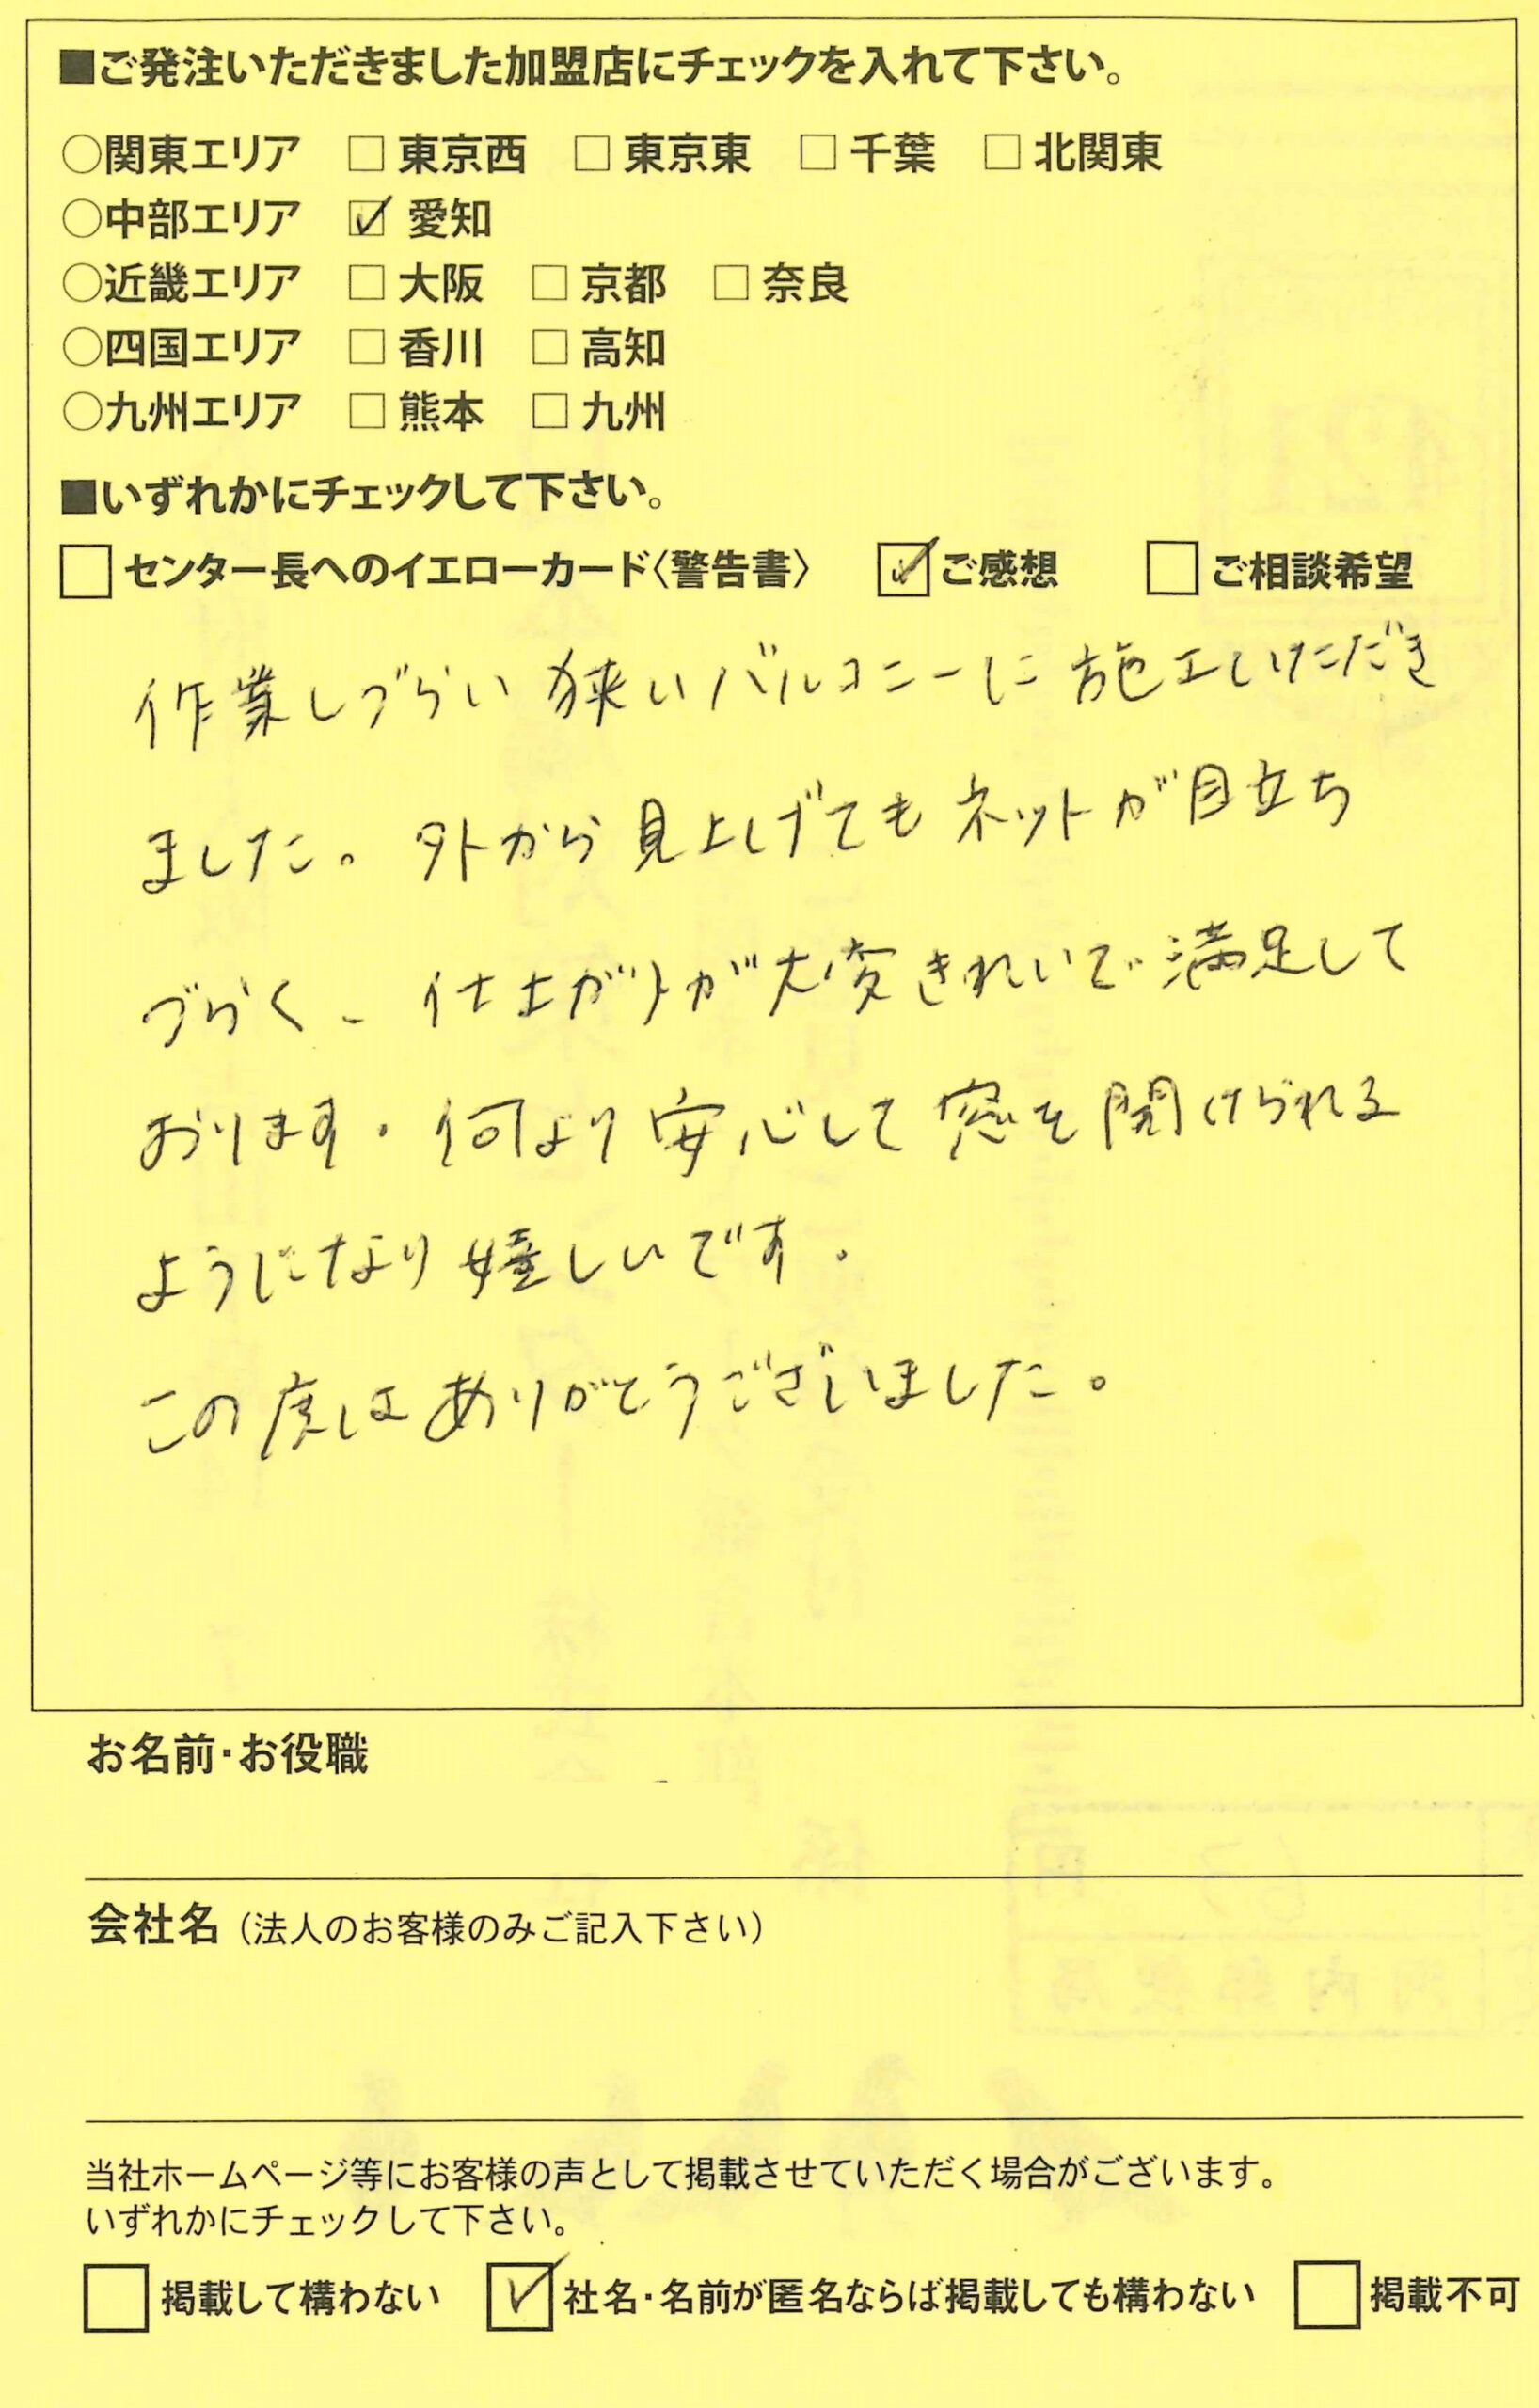 ■ご発注いただきました加盟店にチェックを入れて下さい。
○関東エリア □ 東京西 □ 東京東 □ 千葉 □ 北関東
○中部エリア ☑ 愛知
○近畿エリア □ 大阪 □ 京都 □ 奈良
○四国エリア □ 香川 □ 高知
○九州エリア □ 熊本 □ 九州
■いずれかにチェックして下さい。
□ センター長へのイエローカード〈警告書〉 ☑ ご感想 □ ご相談希望
作業しづらい狭いバルコニーに施工いただき
ました。外から見上げてもネットが目立ち
づらく、仕上がりが大変きれいで満足して
おります。何より安心して窓を開けられる
ようになり嬉しいです。
この度はありがとうございました。
お名前・お役職
会社名（法人のお客様のみご記入下さい）
当社ホームページ等にお客様の声として掲載させていただく場合がございます。
いずれかにチェックして下さい。
□ 掲載して構わない ☑ 社名・名前が匿名ならば掲載しても構わない □ 掲載不可